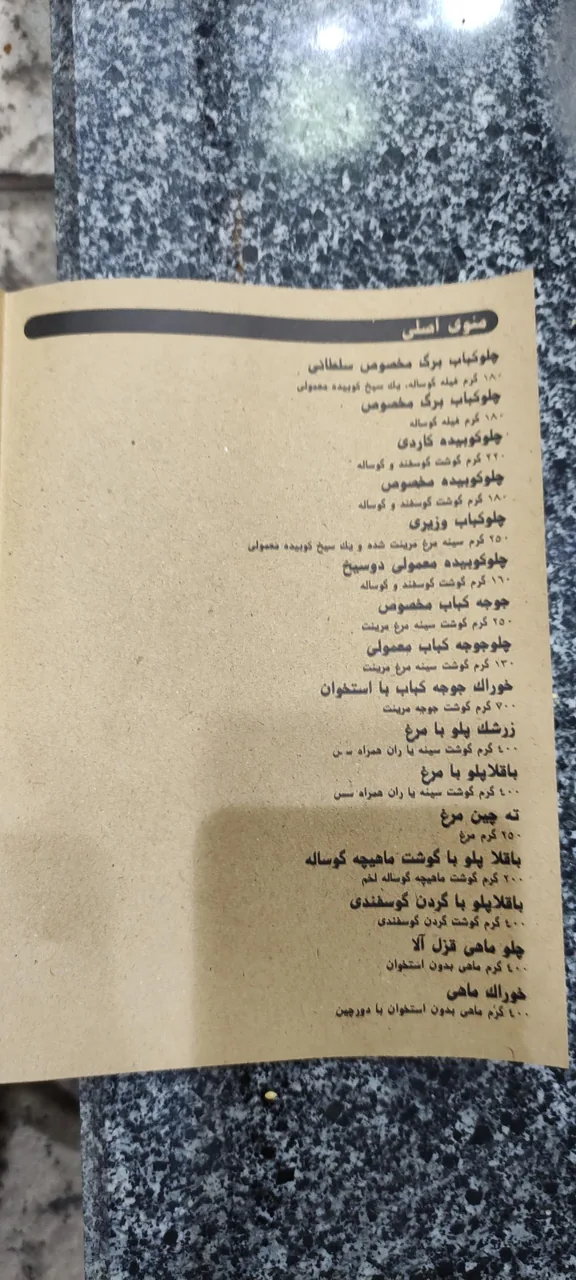 منوی اصلی
چلوکباب برگ مخصوص سلطانی
۱۸۰ گرم فیله گوساله، یك سیخ کوبیده معمولی
چلوکباب برگ مخصوص
۱۸۰ گرم فیله گوساله
چلوکوبیده کاردی
۲۲۰ گرم گوشت گوسفند و گوساله
چلوکوبیده مخصوص
۱۸۰ گرم گوشت گوسفند و گوساله
چلوکباب وزیری
۲۵۰ گرم سینه مرغ مرینت شده و یك سیخ کوبیده معمولی
چلوکوبیده معمولی دوسیخ
۱۶۰ گرم گوشت گوسفند و گوساله
جوجه کباب مخصوص
۲۵۰ گرم گوشت سینه مرغ مرینت
چلوجوجه کباب معمولی
۱۳۰ گرم گوشت سینه مرغ مرینت
خوراك جوجه کباب با استخوان
۷۰۰ گرم گوشت جوجه مرینت
زرشك پلو با مرغ
۴۰۰ گرم گوشت سینه یا ران همراه سس
باقلاپلو با مرغ
۴۰۰ گرم گوشت سینه یا ران همراه سس
ته چین مرغ
۲۵۰ گرم مرغ
باقلا پلو با گوشت ماهیچه گوساله
۲۰۰ گرم گوشت ماهیچه گوساله لخم
باقلاپلو با گردن گوسفندی
۴۰۰ گرم گوشت گردن گوسفندی
چلو ماهی قزل آلا
۴۰۰ گرم ماهی بدون استخوان
خوراك ماهی
۴۰۰ گرم ماهی بدون استخوان با دورچین